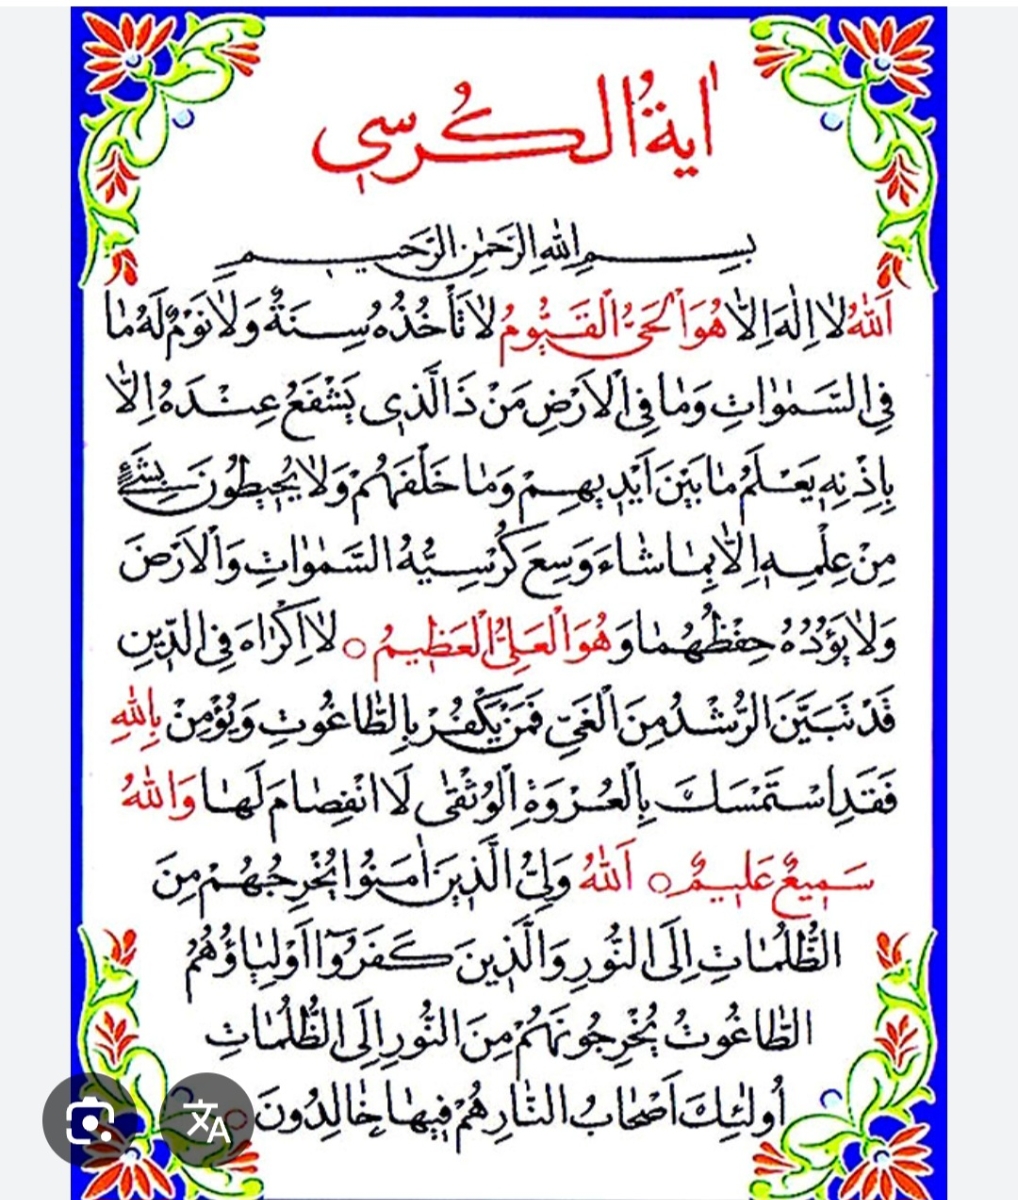 اٰيَةُ الْكُرْسِي
بِسْمِ اللهِ الرَّحْمٰنِ الرَّحِيمِ
اَللهُ لَا اِلٰهَ اِلَّا هُوَ اَلْحَىُّ الْقَيُّومُ لَا تَأْخُذُهُ سِنَةٌ وَلَا نَوْمٌ لَهُ مَا
فِى السَّمٰوَاتِ وَمَا فِى الْاَرْضِ مَنْ ذَا الَّذِى يَشْفَعُ عِنْدَهُ اِلَّا
بِاِذْنِهِ يَعْلَمُ مَا بَيْنَ اَيْدِيهِمْ وَمَا خَلْفَهُمْ وَلَا يُحِيطُونَ بِشَىْءٍ
مِنْ عِلْمِهِ اِلَّا بِمَا شَاءَ وَسِعَ كُرْسِيُّهُ السَّمٰوَاتِ وَالْاَرْضَ
وَلَا يَؤُدُهُ حِفْظُهُمَا وَهُوَ الْعَلِىُّ الْعَظِيمُ ○ لَا اِكْرَاهَ فِى الدِّينِ
قَدْ تَبَيَّنَ الرُّشْدُ مِنَ الْغَىِّ فَمَنْ يَكْفُرْ بِالطَّاغُوتِ وَيُؤْمِنْ بِاللهِ
فَقَدِ اسْتَمْسَكَ بِالْعُرْوَةِ الْوُثْقٰى لَا انْفِصَامَ لَهَا وَاللهُ
سَمِيعٌ عَلِيمٌ ○ اَللهُ وَلِىُّ الَّذِينَ اٰمَنُوا يُخْرِجُهُمْ مِنَ
الظُّلُمَاتِ اِلَى النُّورِ وَالَّذِينَ كَفَرُوا اَوْلِيَاؤُهُمُ
الطَّاغُوتُ يُخْرِجُونَهُمْ مِنَ النُّورِ اِلَى الظُّلُمَاتِ
اُولٰئِكَ اَصْحَابُ النَّارِ هُمْ فِيهَا خَالِدُونَ ○